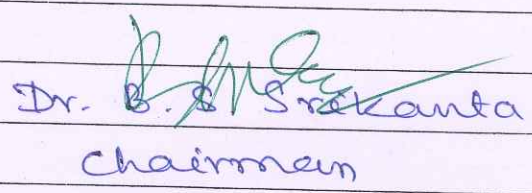 Dr. B. S Srikanta
Chairman